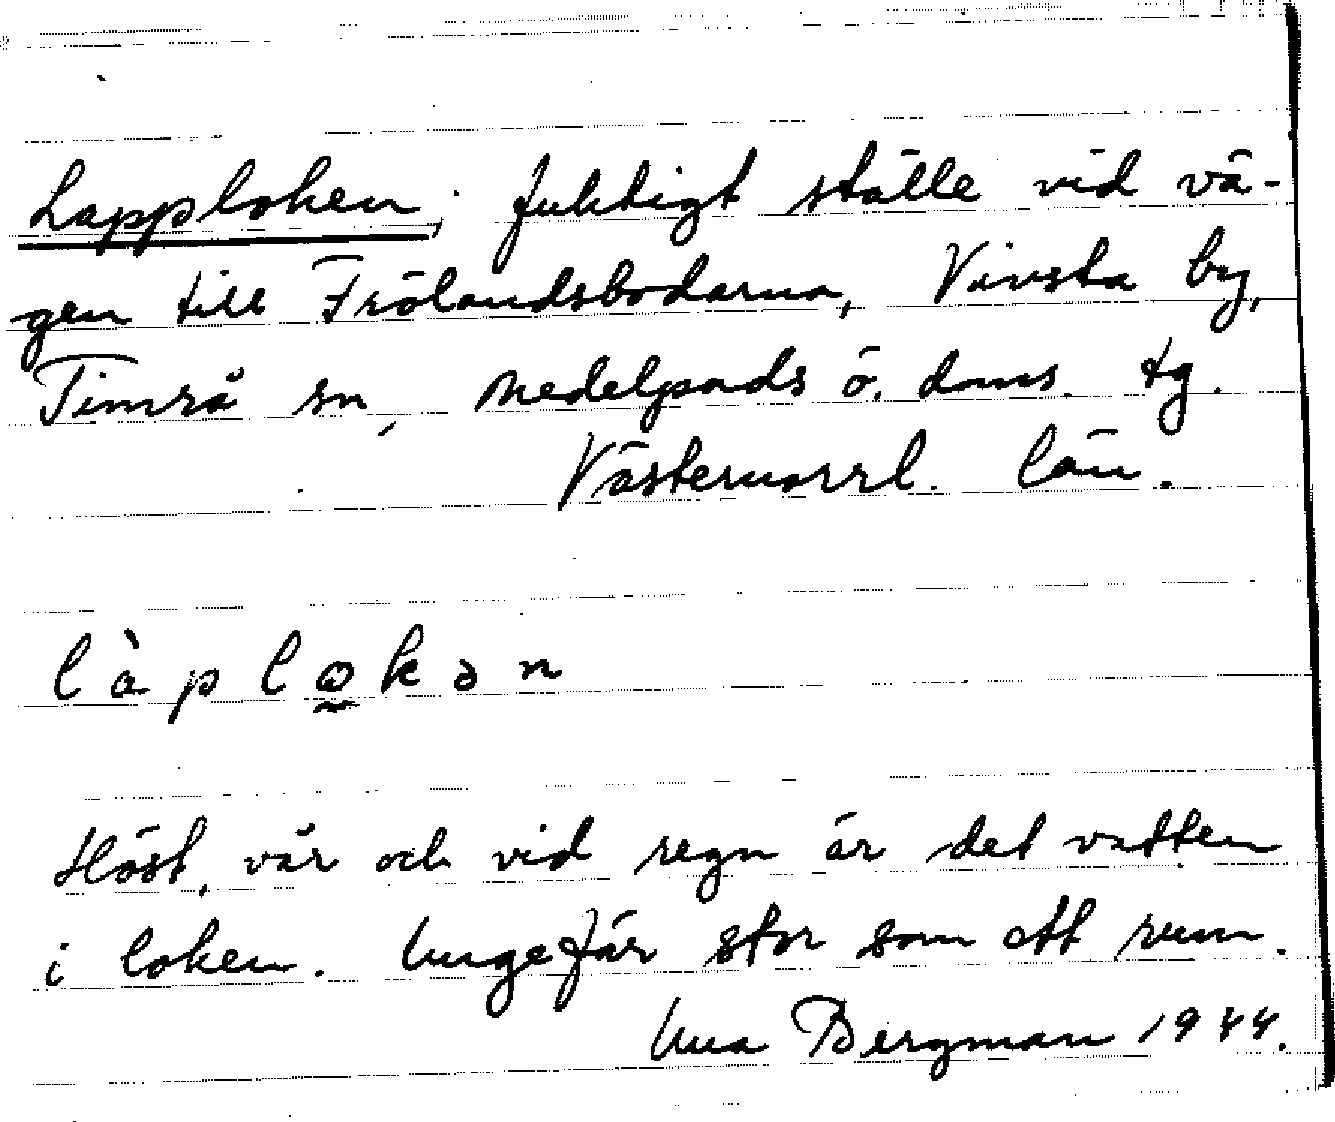 Lapploken; fuktigt ställe vid vä-
gen till Frölandsbodarna, Vivsta by,
Timrå sn, Medelpads ö. doms. tg.
Västernorrl. län.
làplo̰kən
Höst, vår och vid regn är det vatten
i loken. Ungefär stor som ett rum.
Una Bergman 1944.